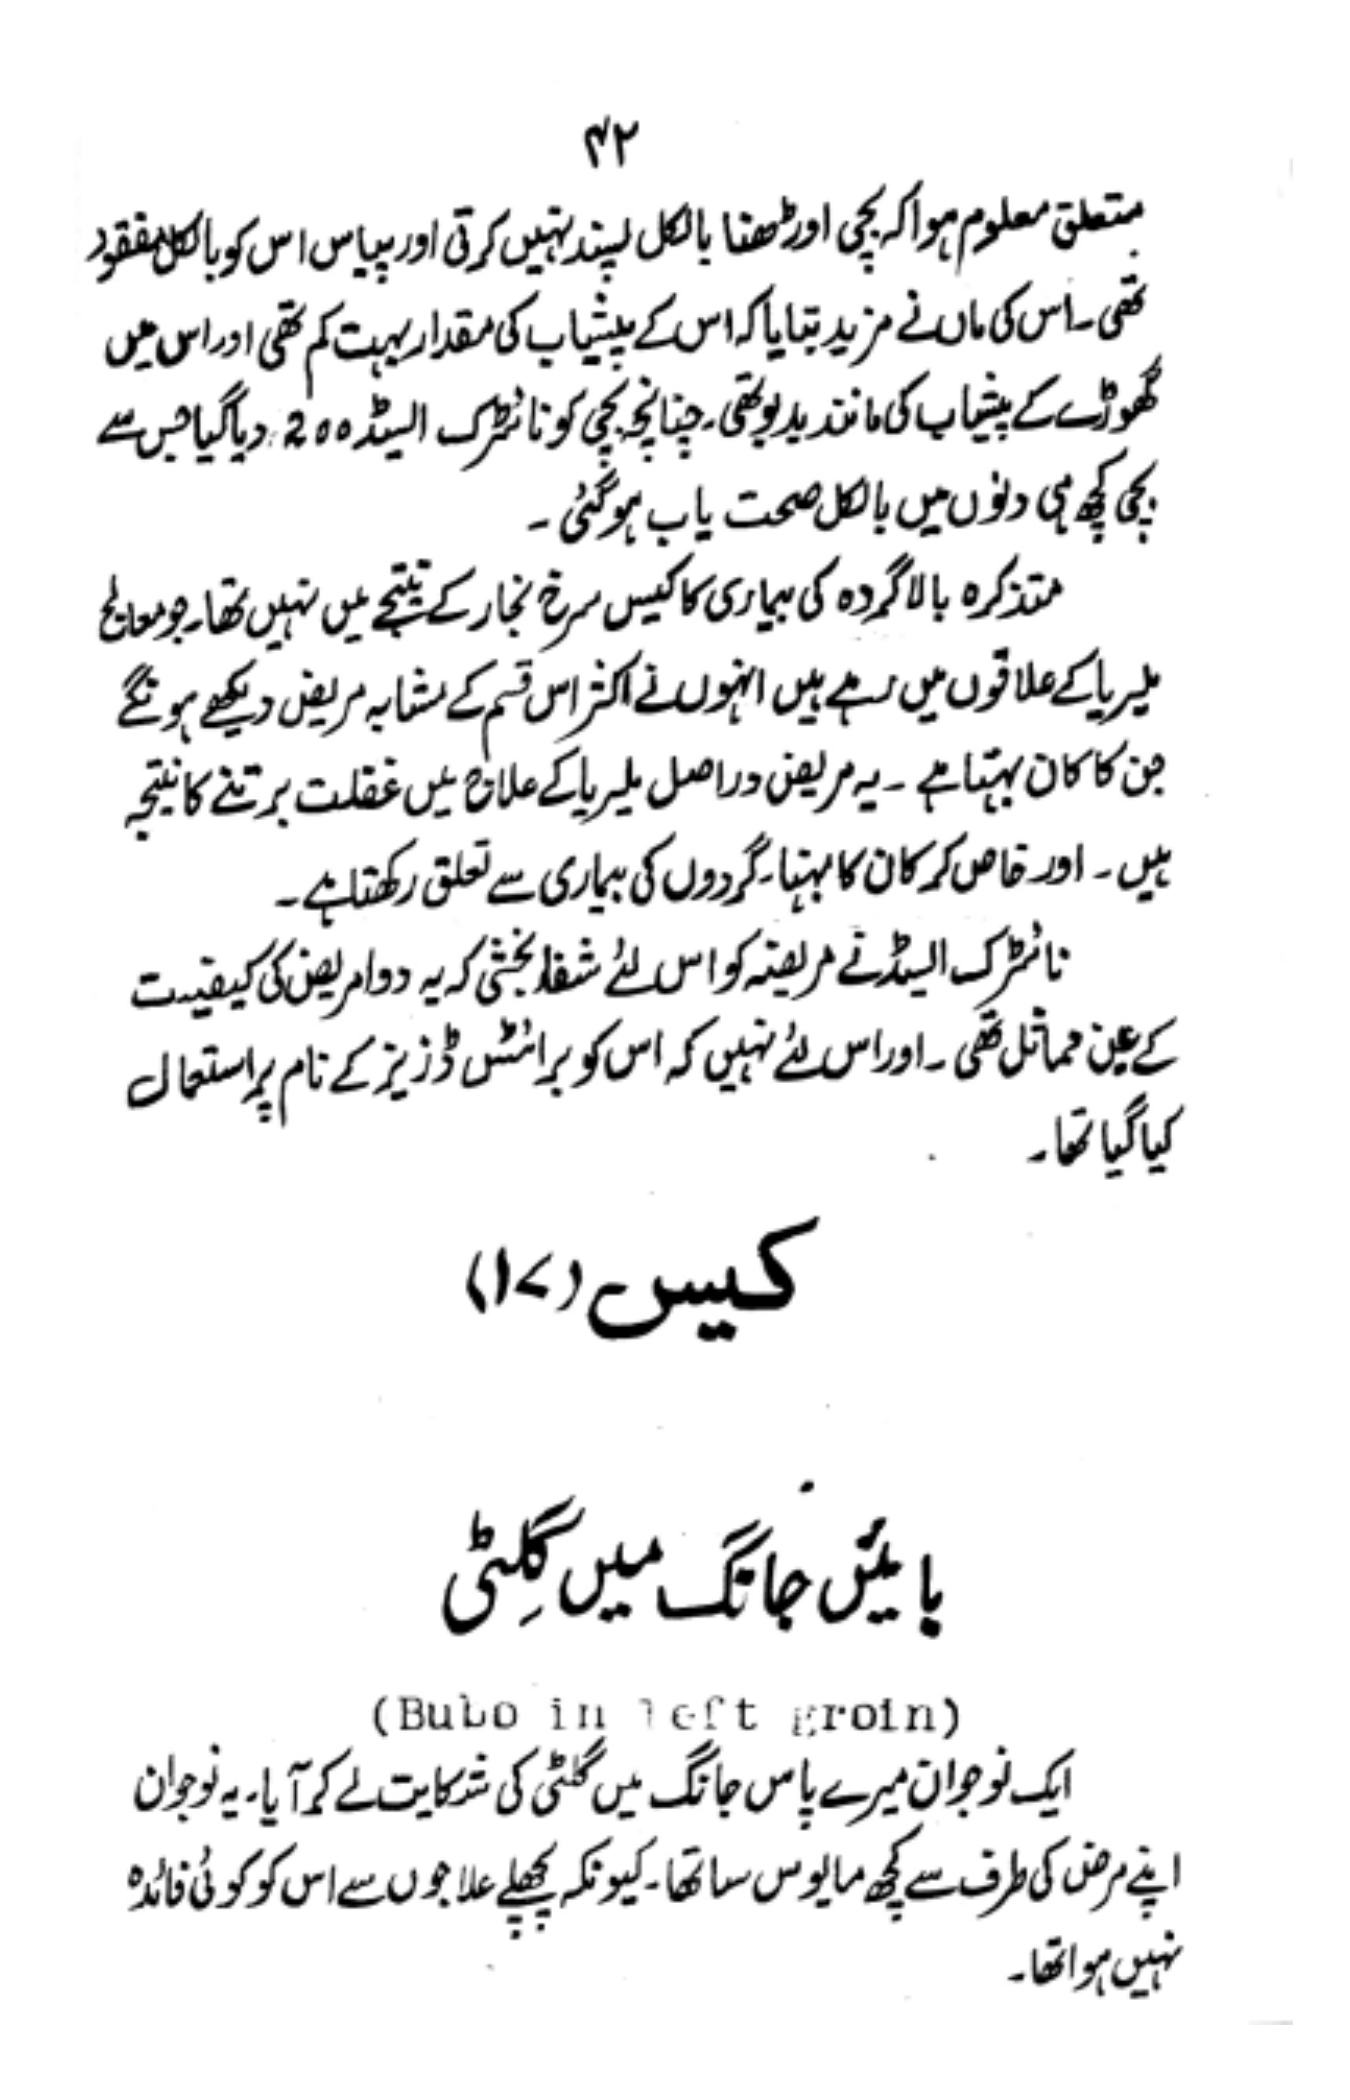 ۴۲
متعلق معلوم ہوا کہ بچی اوڑھنا بالکل پسند نہیں کرتی اور پیاس اس کو بالکل مفقود
تھی۔ اس کی ماں نے مزید بتایا کہ اس کے پیشاب کی مقدار بہت کم تھی اور اس میں
گھوڑے کے پیشاب کی مانند بدبو تھی۔ چنانچہ بچی کو نائٹرک ایسڈ 200 دیا گیا جس سے
بچی کچھ ہی دنوں میں بالکل صحت یاب ہو گئی۔
متذکرہ بالا گردہ کی بیماری کا کیس سرخ بخار کے نتیجے میں نہیں تھا۔ جو معالج
ملیریا کے علاقوں میں رہے ہیں انہوں نے اکثر اس قسم کے مشابہ مریض دیکھے ہونگے
جن کا کان بہتا ہے۔ یہ مریض دراصل ملیریا کے علاج میں غفلت برتنے کا نتیجہ
ہیں۔ اور خاص کر کان کا بہنا۔ گردوں کی بیماری سے تعلق رکھتا ہے۔
نائٹرک ایسڈ نے مریضہ کو اس لئے شفا بخشی کہ یہ دوا مریض کی کیفیت
کے عین مماثل تھی۔ اور اس لئے نہیں کہ اس کو برائٹس ڈزیز کے نام پر استعمال
کیا گیا تھا۔
کیس (۱۷)
بائیں جانگ میں گِلٹی
(Bubo in left groin)
ایک نوجوان میرے پاس جانگ میں گلٹی کی شکایت لے کر آیا۔ یہ نوجوان
اپنے مرض کی طرف سے کچھ مایوس سا تھا۔ کیونکہ پچھلے علاجوں سے اس کو کوئی فائدہ
نہیں ہوا تھا۔